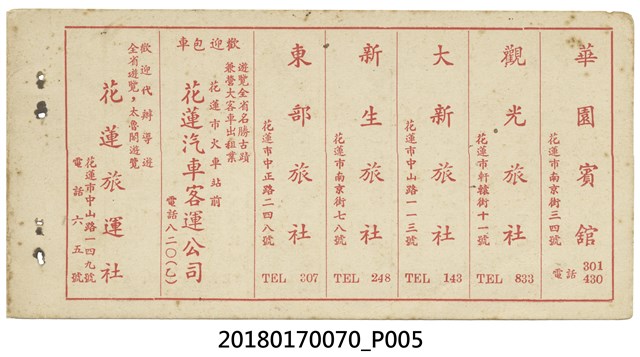 華園賓舘
花蓮市南京街三四號
電話 301
430
觀光旅社
花蓮市軒轅街十一號
TEL 833
大新旅社
花蓮市中山路一一三號
TEL 143
新生旅社
花蓮市南京街七八號
TEL 248
東部旅社
花蓮市中正路二四八號
TEL 307
歡迎包車
遊覽全省名勝古蹟
兼營大客車出租業
花蓮市火車站前
花蓮汽車客運公司
電話八二〇(九)
歡迎代辦導遊
全省遊覽，太魯閣遊覽
花蓮旅運社
花蓮市中山路一四九號
電話六五號
20180170070_P005